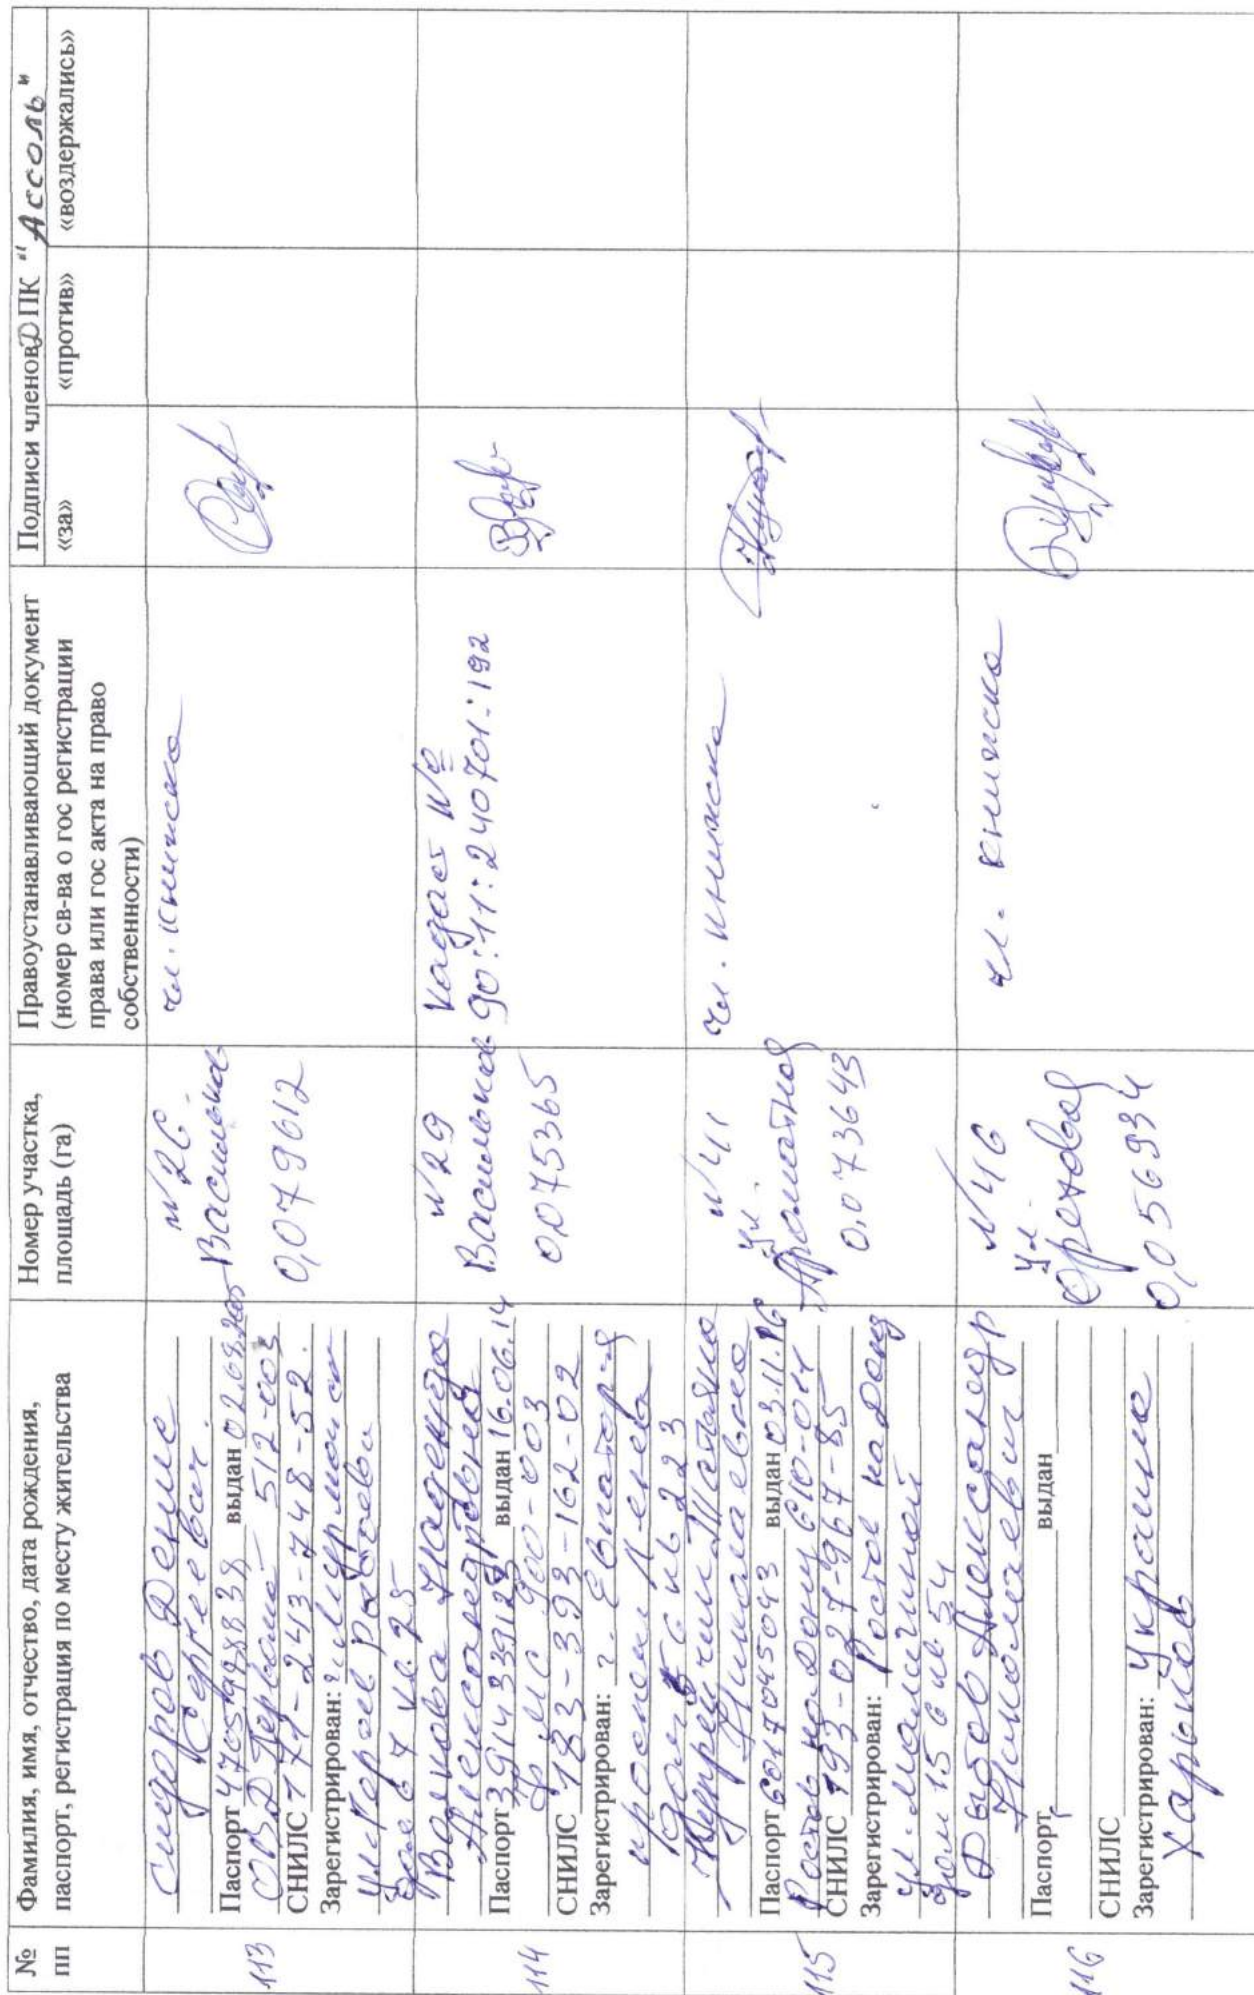 № пп
Фамилия, имя, отчество, дата рождения, паспорт, регистрация по месту жительства
Номер участка, площадь (га)
Правоустанавливающий документ (номер св-ва о гос регистрации права или гос акта на право собственности)
Подписи членов ДПК "Ассоль"
«за»
«против»
«воздержались»
113
Сидоров Денис
Сергеевич
Паспорт 4705 988 38 выдан 02.09.2005
ОВД 512-003
СНИЛС 171-243-748-52.
Зарегистрирован: г. Мурманск
ул. Героев
дом 67 кв. 25
№26
Васильков
0,079612
чл. книжка
114
Волкова Надежда
Александровна
Паспорт 3914 339128 выдан 16.06.14
ФМС 900-003
СНИЛС 183-393-162-02
Зарегистрирован: г. Евпатория
проспект Ленина
дом 56 кв 223
№29
Васильков
0,075365
Кадаст №
90:11:240701:192
115
Куприсчик Татьяна
Николаевна
Паспорт 6017045043 выдан 03.11.16
Ростов на Дону 610-014
СНИЛС 193-027-967-85
Зарегистрирован: Ростов на Дону
ул. Малюгиной
дом 156 кв 54
№41
ул.
Ароматная
0,073643
чл. книжка
116
Дытов Александр
Николаевич
Паспорт выдан
СНИЛС
Зарегистрирован: Украина
Харьков
№46
ул.
Ореховая
0,056934
чл. книжка